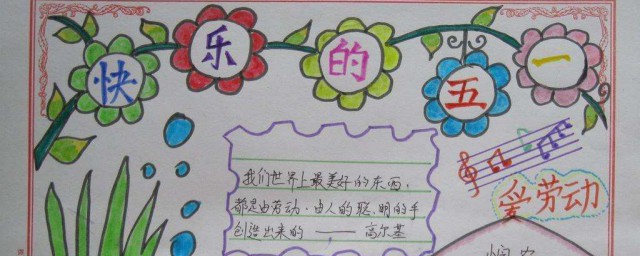 快乐的五一
我们世界上最美好的东西,
都是由劳动、由人的聪明的手
创造出来的 —— 高尔基
爱劳动